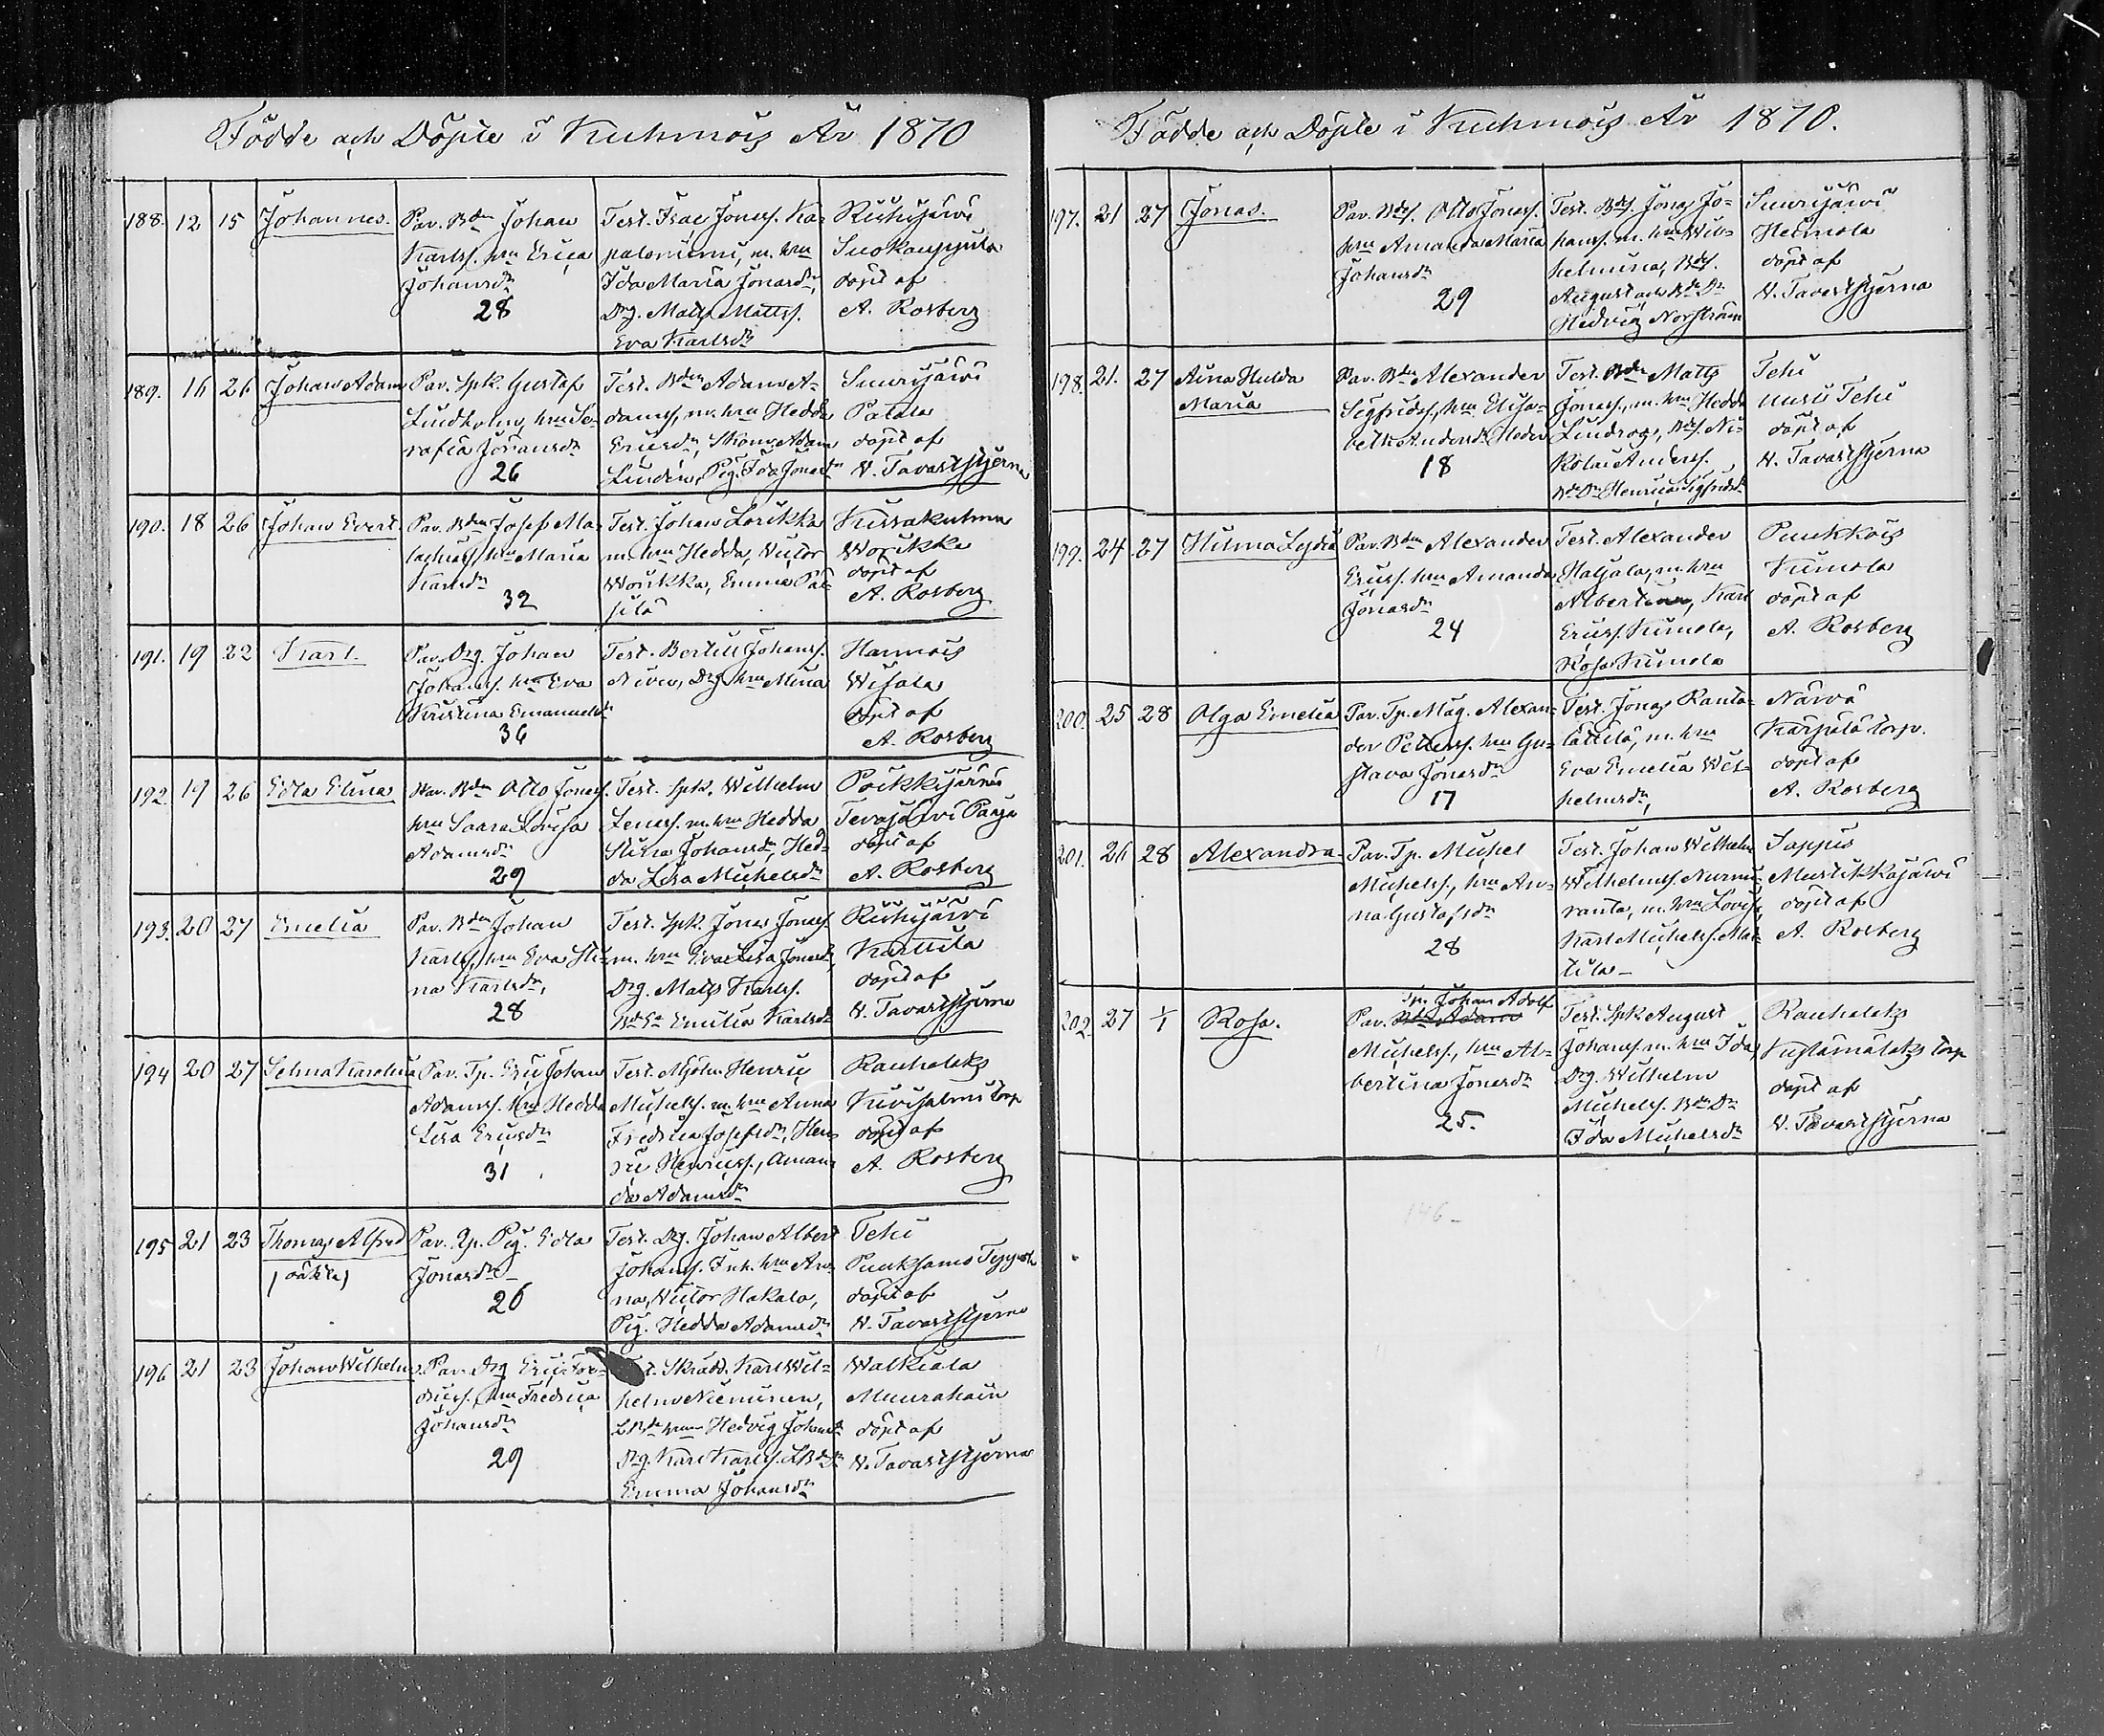 Födde och Döpte i Kuhmois År 1870
188. 12 15 Johannes.
Pav. Bdn Johan
Karlss. hru Erica
Johansdr
28
Test. Isac Jonass. Ka-
paloniemi, m. hru
Ida Maria Jonasdr,
Drg. Matts Mattss.
Eva Karlsdr
Ruhijärvi
Suokauppila
döpt af
A. Rosberg
189. 16 26 Johan Adam
Pav. Spk. Gustaf
Lindholm, hru Se-
rafia Göransdr
26
Test. Bdn Adam A-
damss, m. hru Hedda
Ericsdr, Skom. Adam
Lindén, Pig. Ida Jonasdr
Suurijärvi
Patala
döpt af
W. Tavaststjerna
190. 18 26 Johan Evert.
Pav. Bdn Josef Ma-
lachiass hru Maria
Karlsdr
32
Test. Johan Lorikka
m. hru Hedda, Victor
Worikka, Emma Pää-
silä
Kissakulma
Worikka
döpt af
A. Rosberg
191. 19 22 Karl.
Pav. Drg. Johan
Johanss. hru Eva
Kristina Emanuelsdr
36
Test. Bertell Johanss.
Drg. hru Mina
Harmois
Wisala
döpt af
A. Rosberg
192. 19 26 Edla Elina
Pav. Bdn Otto Jonass.
hru Saara Lovisa
Adamsdr
29
Test. Spk. Wilhelm
m. hru Hedda
Stina Johansdr, Hed-
da Lisa Michelsdr
Poikkijärvi
Tevajärvi Paaja
döpt af
A. Rosberg
193. 20 27 Emelia
Pav. Bdn Johan
Karlss, hru Eva Sti-
na Karlsdr,
28
Test. Spk. Jonas Jonass.
m. hru Eva Lisa Jonasdr,
Drg. Matts Karlss.
Emilia Karlsdr
Ruhijärvi
Karttila
döpt af
W. Tavaststjerna
194 20 27 Selma Karolina
Pav. Tp. Eric Johan
Adamss. hru Hedda
Lisa Ericsdr
31
Test. Mjöln. Henric
Michelss. m. hru Anna
Fredrica Josefsdr, Hen-
ric Henricss., Aman-
da Adamsdr
Rauhalaks
Kivisalmi torp
döpt af
A. Rosberg
195 21 23 Thomas Alfred
(oäkta)
Pav. Pig. Edla
Jonasdr
26
Test. Drg. Johan Albert
Johanss. Inh. hru An-
na, Victor Hakala,
Pig. Hedda Adamsdr
Tehi
döpt af
W. Tavaststjerna
196 21 23 Johan Wilhelm
Pav. Drg Eric
hru Fredrica
Johansdr
29
Skrädd. Karl Wil-
helm Nieminen,
Hedvig Johansdr
Drg. Karl Karlss.
Emma Johansdr
Walkiala
Muurahain
döpt af
W. Tavaststjerna
Födde och Döpte i Kuhmois År 1870.
197. 21 27 Jonas.
Pav. Bds. Otto Jonass.
hru Amanda Maria
Johansdr
29
Test. Bds. Jonas Jo-
hanss. m. hru Wil-
helmina, Bds.
August och Bds Dr
Hedvig Norström
Suurijärvi
Heimola
döpt af
W. Tavaststjerna
198 21. 27 Aina Hulda
Maria
Pav. Bdn Alexander
Sigfridss., hru Elisa-
beth Andersdr Heder
18
Test. Bdn Matts
Jonass., m. hru Hedda
Lindroos, Bds. Ni-
kolai Anderss.
Bds Dr Henrica Sigfridsdr
Tehi
Uusi Tehi
döpt af
W. Tavaststjerna
199. 24 27 Hilma Lydia
Pav. Bdn Alexander
Ericss. hru Amanda
Jonasdr
24
Test. Alexander
Haljala, m. hru
Albertina, Karl
Ericss. Kumola,
Rosa Kumola
Puukkois
Kumola
döpt af
A. Rosberg
200. 25 28 Olga Emelia
Pav. Tp. Mag. Alexan-
der Petterss. hru Gu-
stava Jonasdr
17
Test. Jonas Ranta-
m. hru
Eva Emelia Wil-
helmsdr,
Närvä
Kärpälä torp.
döpt af
A. Rosberg
201. 26 28 Alexandra
Pav. Tp. Michel
Michelss., hru An-
na Gustafsdr
28
Test. Johan Wilhelm
Wilhelmss. Nurmi-
ranta, m. hru Lovisa,
Karl Michelss. Mat-
tila
Sappis
Mustikkajärvi
döpt af
A. Rosberg
202 27 1/1 Rosa.
Tp. Johan Adolf
Pav. Bdn Adam
Michelss., hru Al-
bertina Jonasdr
25.
Test. Spk August
Johanss m. hru Ida,
Drg. Wilhelm
Michelss. Bds Dr
Ida Michelsdr
Rauhalaks
torp
döpt af
W. Tavaststjerna
146